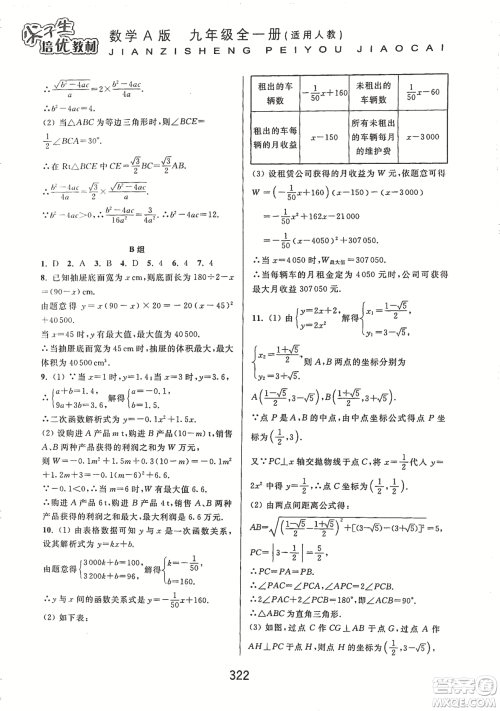 尖子生培优教材
数学A版 九年级全一册(适用人教)
JIANZISHENG PEIYOU JIAOCAI
∴√(b²-4ac)/2=(b²-4ac)/4.
∴b²-4ac=4.
(2) 当△ABC为等边三角形时,∠BCE=
1/2∠BCA=30°.
∴在Rt△BCE中,CE=√3/2BC=√3/2AB.
∴(b²-4ac)/4=√3/2×√(b²-4ac).
∵b²-4ac>0,∴b²-4ac=12.
B组
1. D 2. D 3. A 4. A 5. 4 6. 4 7. 4
8. 已知抽屉底面宽为x cm,则底面长为180÷2-x
=(90-x)cm.
由题意得y=x(90-x)×20=-20(x-45)²
+40500.
当x=45时,y有最大值,最大值为40500.
∴当抽屉底面宽为45cm时,抽屉的体积最大,最大体
积为40500cm³.
9. (1) ∵当x=1时,y=1.4;当x=3时,y=3.6,
∴{a+b=1.4, 9a+3b=3.6, 解得{a=-0.1, b=1.5.
∴二次函数解析式为y=-0.1x²+1.5x.
(2) 设购进A产品m t,购进B产品(10-m)t,销售
A、B两种产品获得的利润之和为W万元,
则W=-0.1m²+1.5m+0.3(10-m)=-0.1m²
+1.2m+3=-0.1(m-6)²+6.6.
∵-0.1<0,∴当m=6时,W有最大值6.6.
∴购进A产品6t,购进B产品4t,销售A、B两种产品
获得的利润之和最大,最大利润是6.6万元.
10. (1) 由表格数据可知y与x是一次函数关系,设其
解析式为y=kx+b.
由题意得{3000k+b=100, 3200k+b=96, 解得{k=-1/50, b=160.
∴y与x间的函数关系式是y=-1/50x+160.
(2) 如下表:
租出的车辆数 -1/50x+160 未租出的车辆数 1/50x-60
租出的车每辆的月收益 x-150 所有未租出的车每月的维护费 x-3000
(3) 设租赁公司获得的月收益为W元,依题意可得
W=(-1/50x+160)(x-150)-(x-3000)
=(-1/50x²+163x-24000)-(x-3000)
=-1/50x²+162x-21000
=-1/50(x-4050)²+307050.
∴当x=4050时,W最大值=307050.
∴当每辆车的月租金为4050元时,公司获得
最大月收益307050元.
11. (1) 由{y=2x+2, y=2x² 解得{x₁=(1-√5)/2, y₁=3-√5,
{x₂=(1+√5)/2, y₂=3+√5, 则A,B两点的坐标分别为
A((1-√5)/2,3-√5),B((1+√5)/2,3+√5).
∵点P是A,B的中点,由中点坐标公式得P点坐标
为(1/2,3).
又∵PC⊥x轴交抛物线于点C,将x=1/2代入y=
2x²中得y=1/2,∴C点坐标为(1/2,1/2).
(2) 由两点间距离公式得:
PC=|3-1/2|=5/2,∴PC=PA=PB.
∴∠PAC=∠PCA,∠PBC=∠PCB.
∴2∠PCA+2∠PCB=180°,∴∠ACB=90°.
∴△ABC为直角三角形.
(3) 如图,过点C作CG⊥AB于点G,过点A
作AH⊥PC于点H,则H点的坐标为
322